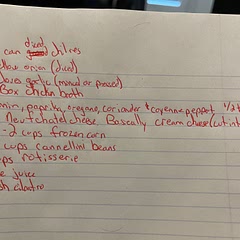 can diced chiles
llow onion (diced)
loves garlic (minced or pressed)
Box chicken broth
min, paprika, oregano, coriander & cayenne pepper 1/2 t
Neufchatel cheese Basically cream cheese (cut int
-2 cups frozen corn
cups cannellini beans
ps rotisserie
e juice
sh cilantro